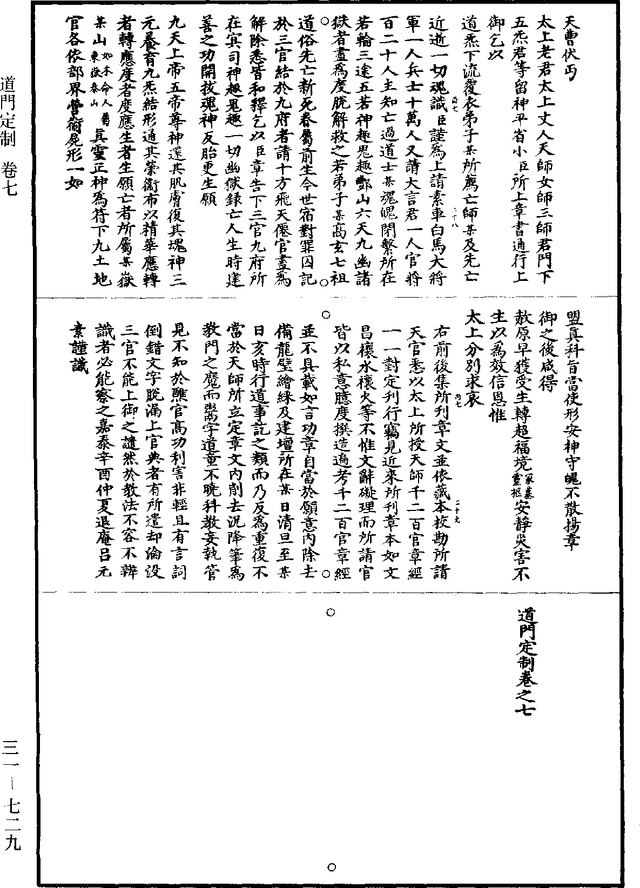 天曹伏丐
太上老君太上丈人天師女師三師君門下
五炁君等留神平省小臣所上章書通行上
御乞以
道炁下流覆衣弟子某所薦亡師某及先亡
近逝一切魂識臣謹為上請素車白馬大將
軍一人兵士十萬人又請大言君一人官將
百二十人主知亡過道士某魂魄閉繫所在
若輪三途五苦神趣鬼趣酆山六天九幽諸
獄者盡為度脫解救之若弟子某高玄七祖
道俗先亡新死眷屬前生今世宿對罪囚記
於三官結於九府者請十方飛天僊官盡為
解除悉皆和釋乞以臣章告下三官九府所
在冥司神趣鬼趣一切幽獄錄亡人生時建
善之功開拔魂神反胎更生願
九天上帝五帝尊神還其肌膚復其魂神三
元養育九炁結形通其榮衛布以精華應轉
者轉應度者度應生者生願亡者所屬某嶽
某山如本命人屬東嶽泰山真靈正神為符下九土地
官各依部界營衛屍形一如
盟真科旨當使形安神守魄不散揚章
御之後咸得
赦原早獲受生轉超福境家墓重柩安靜災害不
生以為效信恩惟
太上分別求哀
右前後集所刊章文並依藏本校勘所請
天官悉以太上所授天師千二百官章經
一一對定刊行竊見近來所刊章本如文
昌禳水禳火等不惟文辭礙理而所請官
皆以私意臆度撰造遍考千二百官章經
並不具載如言功章自當於願意內除去
備龍璧繒綵及建壇所在某日清旦至某
日亥時行道事訖之類而乃反為重復不
當於天師所立定章文內削去況降筆為
教門之魔而鬻字道童不曉科教妄執管
見不知於醮官高功利害非輕且有言詞
倒錯文字脫漏上官典者有所遣却淪沒
三官不能上御之譴然於教法不容不辨
識者必能察之嘉泰辛酉仲夏退庵呂元
素謹識
道門定制卷之七
道門定制 卷七
三一—七二九